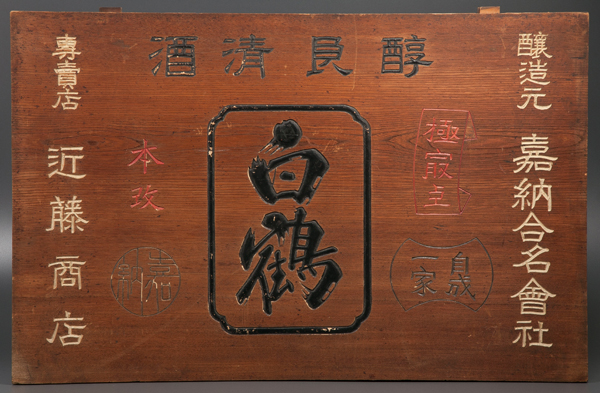 醇良清酒
釀造元
嘉納合名會社
自成
一家
白鶴
嘉納
專賣店
近藤商店